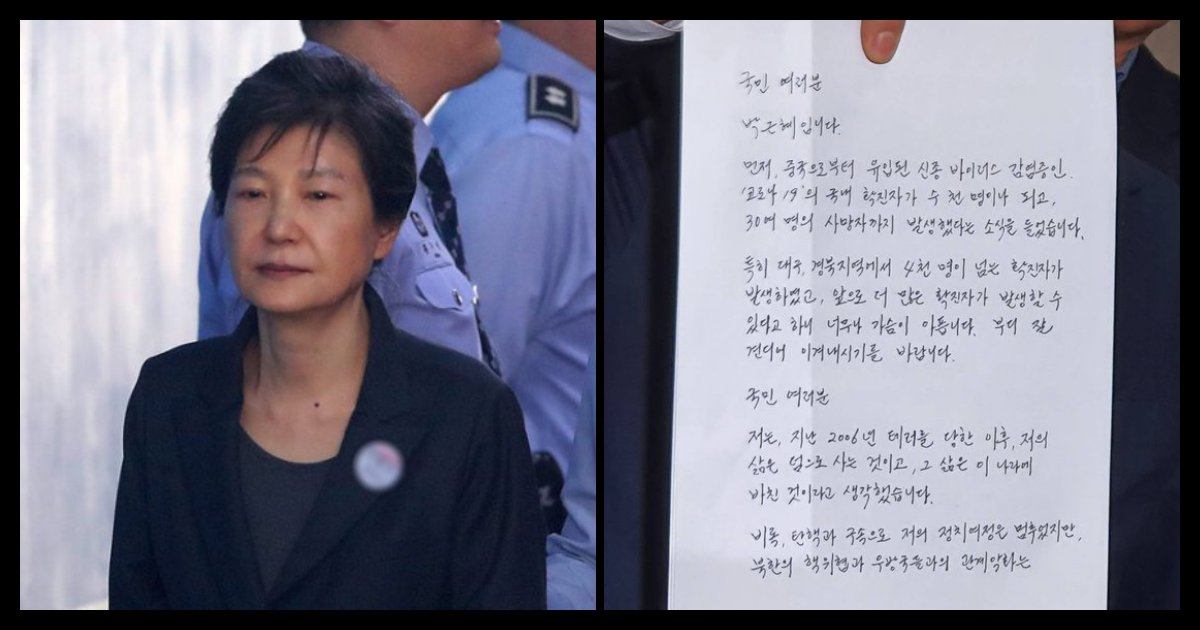 국민 여러분
박근혜입니다.
먼저, 중국으로부터 유입된 신종 바이러스 감염증인.
'코로나 19'의 국내 확진자가 수 천 명이나 되고,
30여 명의 사망자까지 발생했다는 소식을 들었습니다.
특히 대구, 경북지역에서 4천 명이 넘는 확진자가
발생하였고, 앞으로 더 많은 확진자가 발생할 수
있다고 하니 너무나 가슴이 아픕니다. 부디 잘
견디어 이겨내시기를 바랍니다.
국민 여러분
저는, 지난 2006년 테러를 당한 이후, 저의
삶은 덤으로 사는 것이고, 그 삶은 이 나라에
바친 것이라고 생각했습니다.
비록, 탄핵과 구속으로 저의 정치여정은 멈추었지만,
북한의 핵위협과 우방국들과의 관계악화는